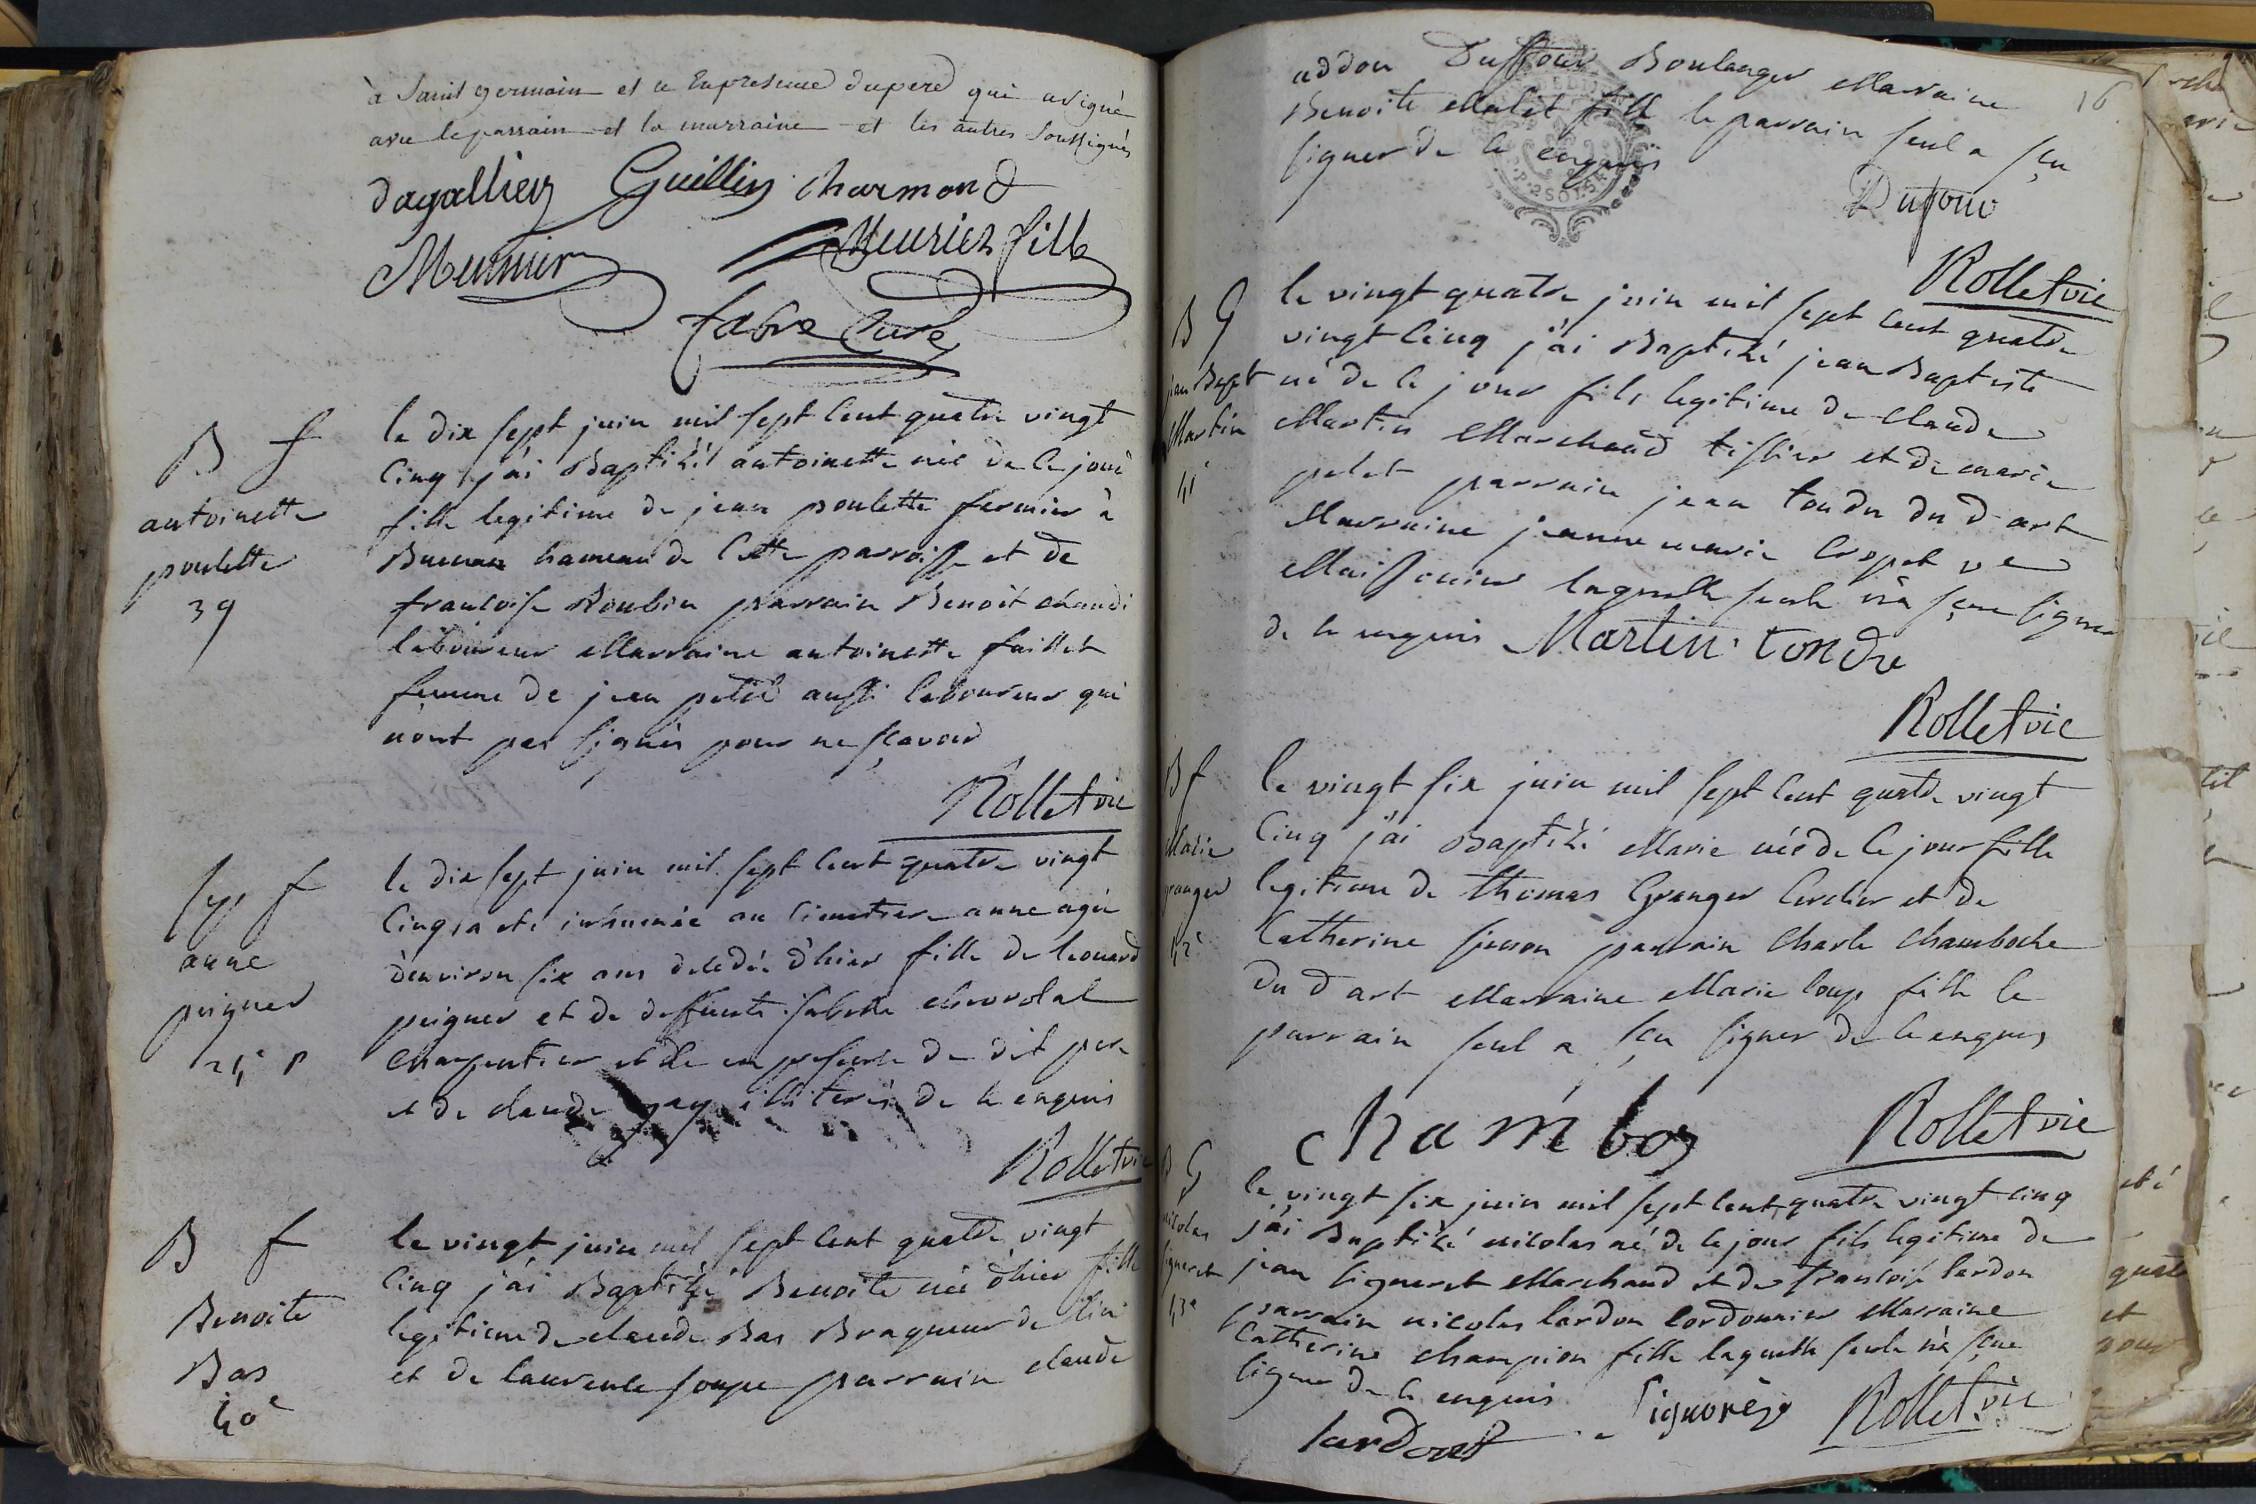 à Saint germain et ce En presence du pere qui a signé
avec le parrain et la marraine et les autres Soussignés
dagallier Guillin charmond
Meunier Meurier fille
fabre Curé
B f
antoinette
poulette
39
le dix sept juin mil sept Cent quatre vingt
Cinq j'ai Baptizé antoinette née de ce jour
fille legitime de jean poulette fermier à
hameau de Cette parroisse et de
francoise Roubin parrain Benoit chaudi
laboureur Marraine antoinette faillet
femme de jean petit aussi laboureur qui
n'ont pas signés pour ne sçavoir
Rollet vic
Sep f
anne
peigner
le dix sept juin mil sept Cent quatre vingt
Cinq a eté inhumée au Cimetiere anne agée
d'environ six ans decedée d'hier fille de leonard
peigner et de deffunte chevrolat
charpentier et de en presence de dit pere
et de claude gay illiterés de ce enquis
Rollet vic
B f
Benoite
Bas
40e
le vingt juin mil sept Cent quatre vingt
Cinq j'ai Baptizé Benoite née d'hier fille
legitime de claude Bas Braqueur de
et de laurence soupe parrain claude
addon Duffour Boulanger Marraine
Benoite Malet fille le parrain seul a sçu
signer de ce enquis
16
Dufour
Rollet vic
B G
jean Bapt
Martin
41
le vingt quatre juin mil sept Cent quatre
vingt Cinq j'ai Baptizé jean Baptiste
né de ce jour fils legitime de Claude
Martin Marchand tissier et de marie
petet parrain jean tondu du d art
Marraine jeanne marie Cropet ve
Maissonier laquelle seule n'a sçue signer
de ce enquis Martin tondu
Rollet vic
B f
Marie
granger
42e
le vingt six juin mil sept Cent quatre vingt
Cinq j'ai Baptizé Marie née de ce jour fille
legitime de thomas Granger Cerclier et de
Catherine simon parrain Charle Chamboche
du d art Marraine Marie loup fille le
parrain seul a sçu signer de ce enquis
chambos Rollet vic
B G
nicolas
signeret
43e
le vingt six juin mil sept Cent quatre vingt cinq
j'ai Baptizé nicolas né de ce jour fils legitime de
jean signeret Marchand et de francoise lardon
parrain nicolas lardon Cordonnier Marraine
Catherine champion fille laquelle seule n'a sçue
signer de ce enquis
lardont Rollet vic